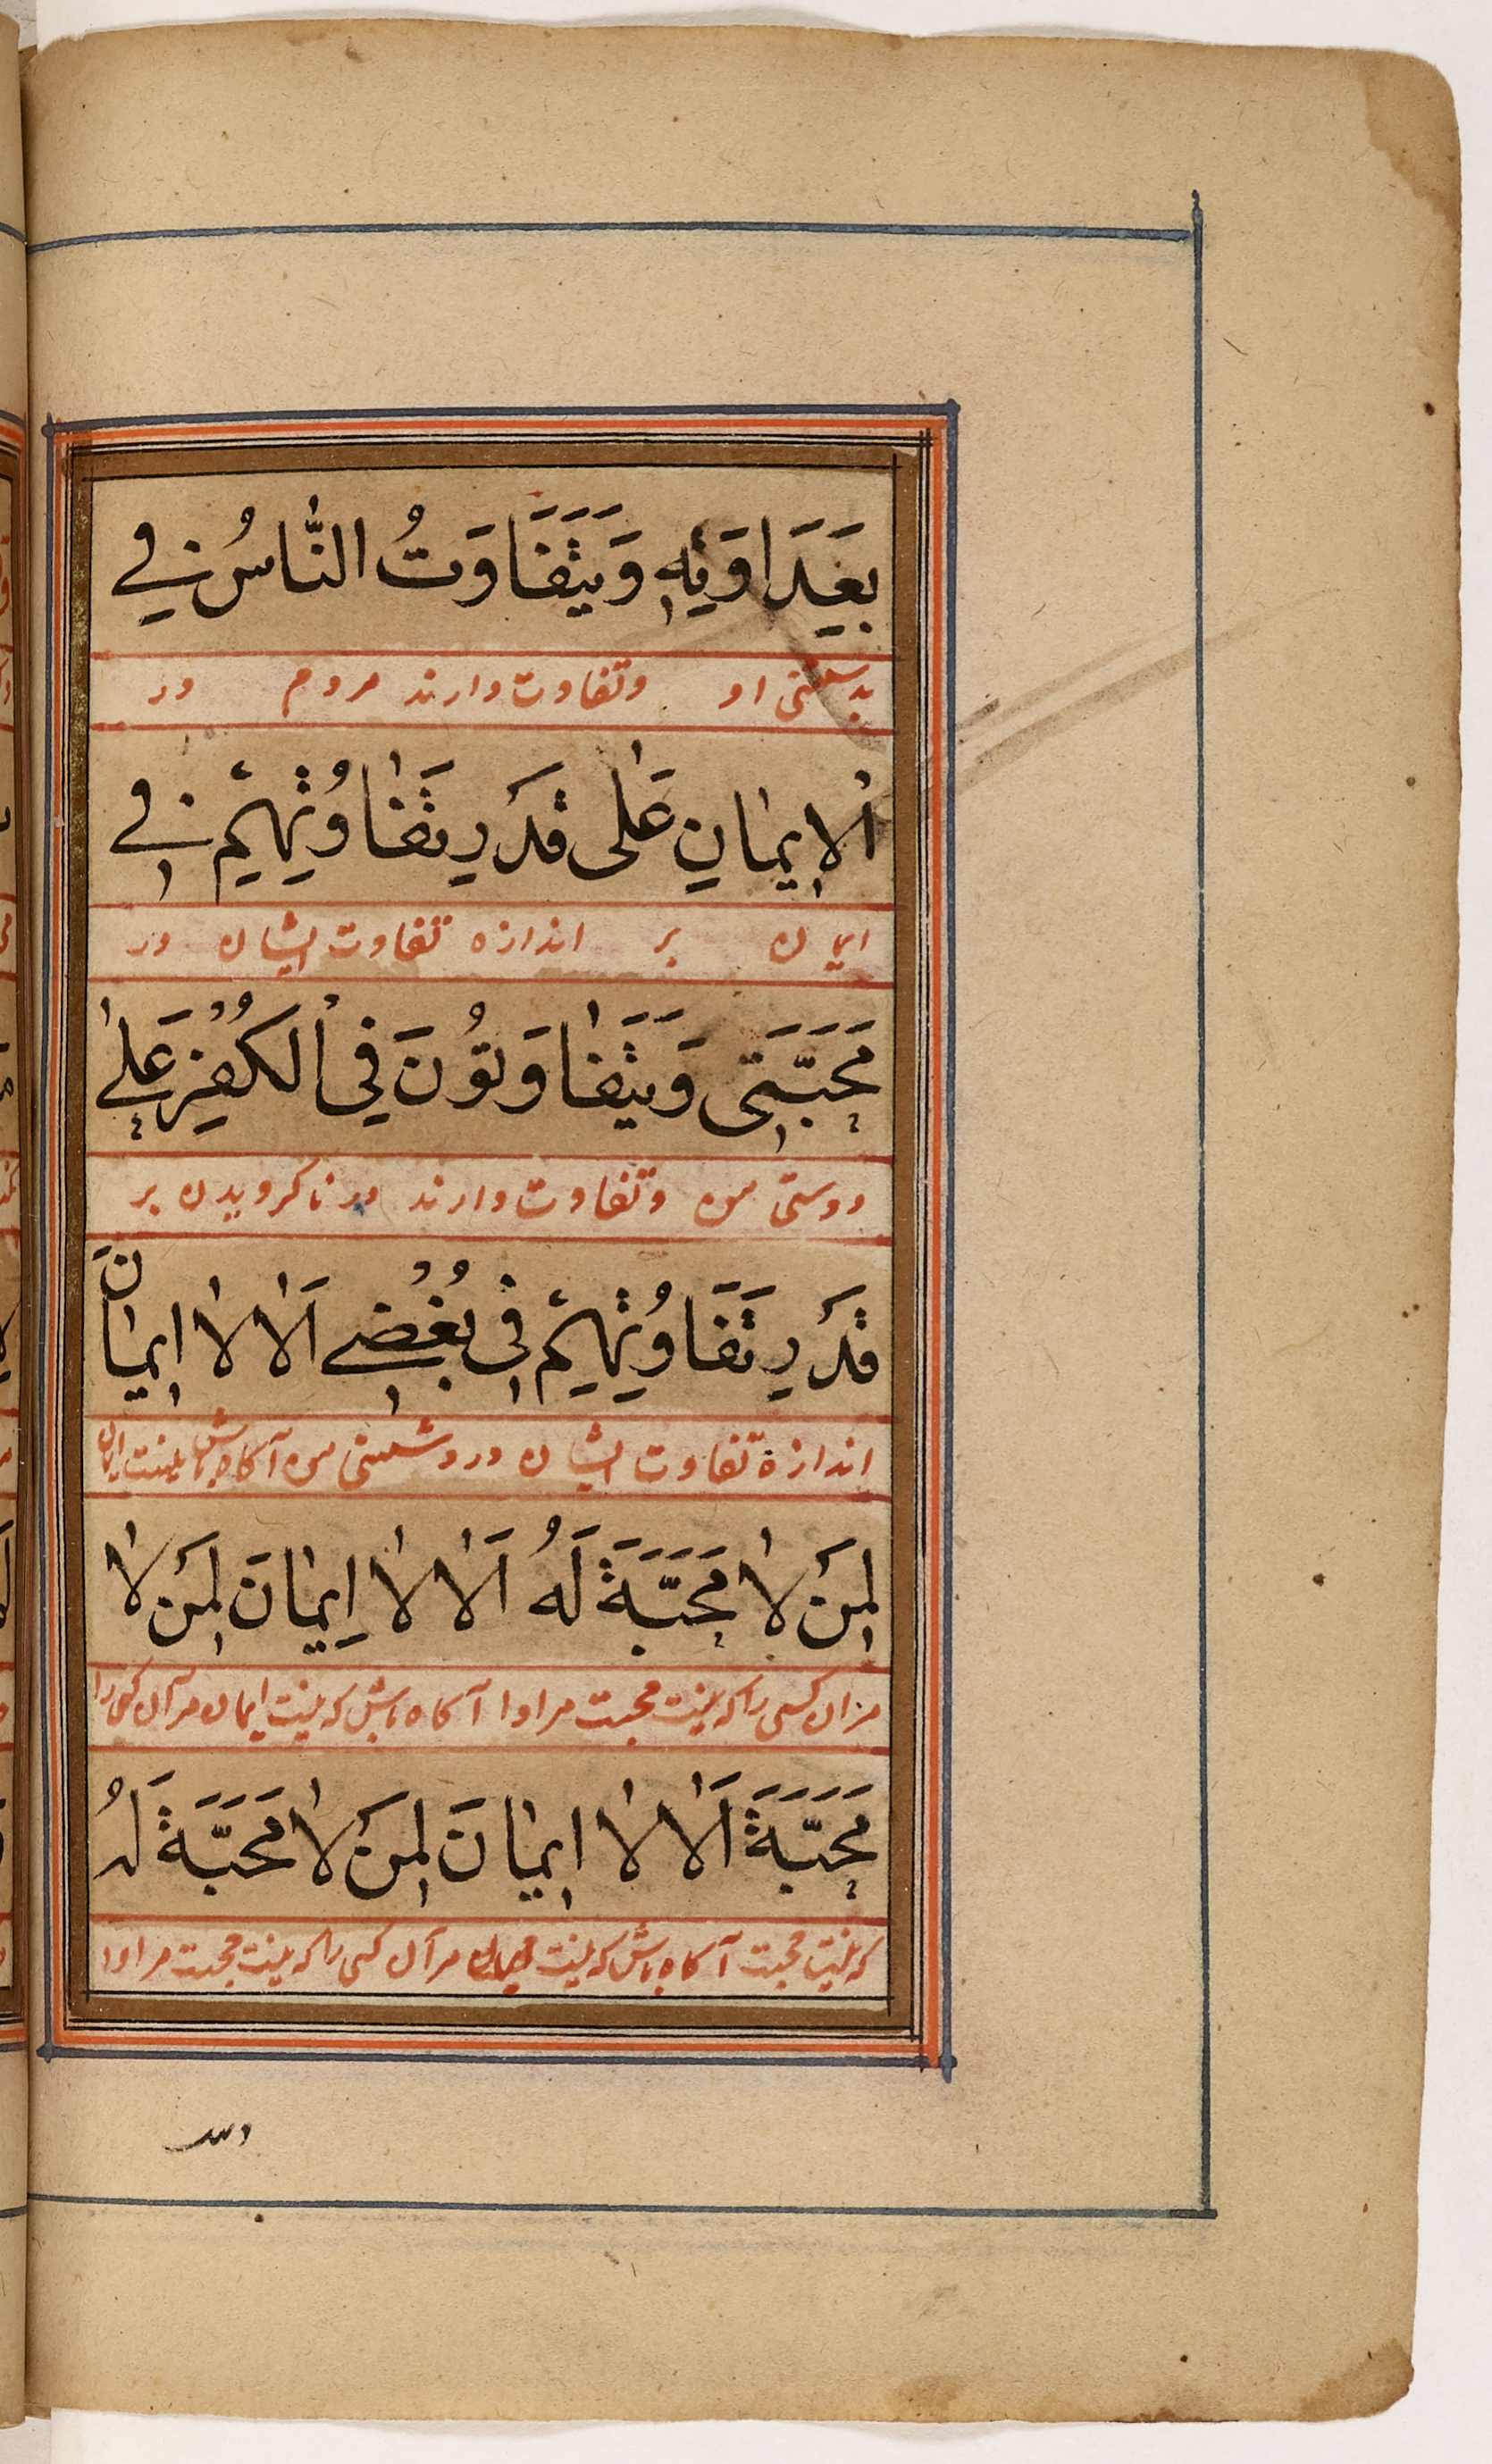 بِعَدَاوَتِهِ وَيَتَفَاوَتُ النَّاسُ فِي
بدشمنی او وتفاوت دارند مردم در
الْإِيمَانِ عَلٰى قَدْرِ تَفَاوُتِهِمْ فِي
ایمان بر اندازه تفاوت ایشان در
مَحَبَّتِي وَيَتَفَاوَتُونَ فِي الْكُفْرِ عَلٰى
دوستی من وتفاوت دارند در ناکرویدن بر
قَدْرِ تَفَاوُتِهِمْ فِي بُغْضِي اَلَا لَا اِيمَانَ
اندازهٔ تفاوت ایشان در دشمنی من آکاه باش نیست ایمان
لِمَنْ لَا مَحَبَّةَ لَهُ اَلَا لَا اِيمَانَ لِمَنْ لَا
مران کسی را که نیست محبت مراورا آکاه باش که نیست ایمان مرآن کس را
مَحَبَّةَ اَلَا لَا اِيمَانَ لِمَنْ لَا مَحَبَّةَ لَهُ
که نیست محبت آکاه باش که نیست ایمان مرآن کسی را که نیست محبت مراورا